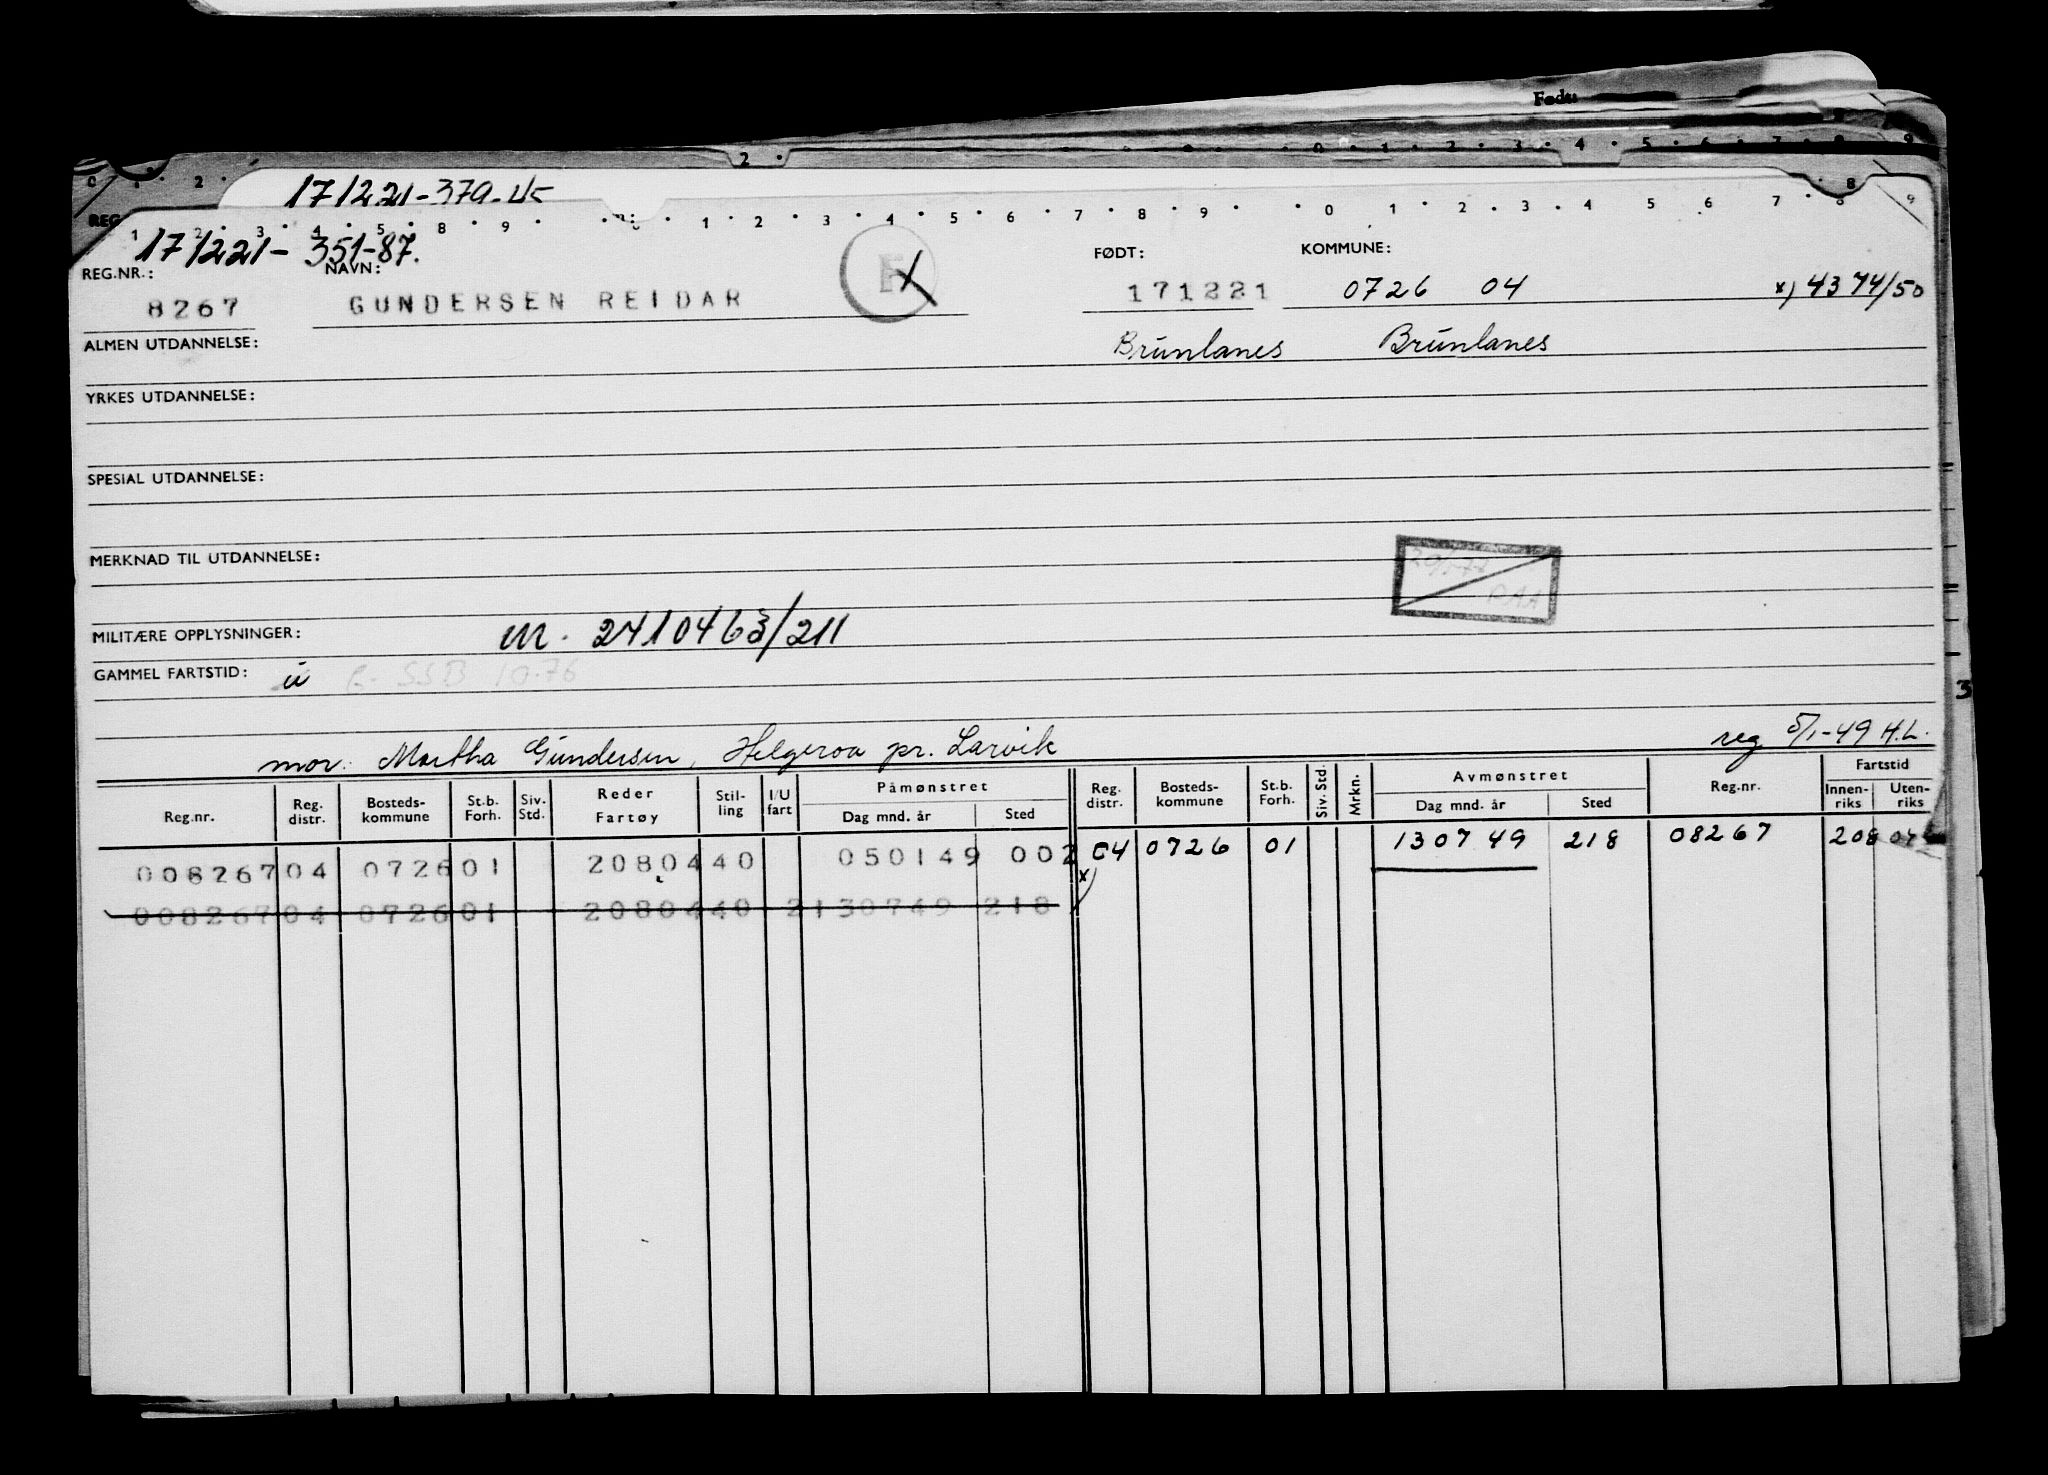 Født:
171221-379-45
171221-351-87.
REG.NR.: NAVN: FØDT: KOMMUNE:
8267 GUNDERSEN REIDAR 171221 0726 04 x) 4374/50
ALMEN UTDANNELSE: Brunlanes Brunlanes
YRKES UTDANNELSE:
SPESIAL UTDANNELSE:
MERKNAD TIL UTDANNELSE:
MILITÆRE OPPLYSNINGER: m. 2410463/211
GAMMEL FARTSTID: ü SSB 10-76
mor: Martha Gundersen, Helgeroa pr. Larvik reg 5/1-49 H.L.
Reg.nr. Reg. distr. Bosteds-kommune St.b. Forh. Siv. Std. Reder Fartøy Stil-ling I/U fart Påmønstret Dag mnd. år Sted Reg. distr. Bosteds-kommune St.b. Forh. Siv. Std. Mrkn. Avmønstret Dag mnd. år Sted Reg.nr. Fartstid Innen-riks Uten-riks
008267 04 0726 01 2080440 050149 002 04 0726 01 130749 218 08267 208
008267 04 0726 01 2080440 2 130749 218 x)